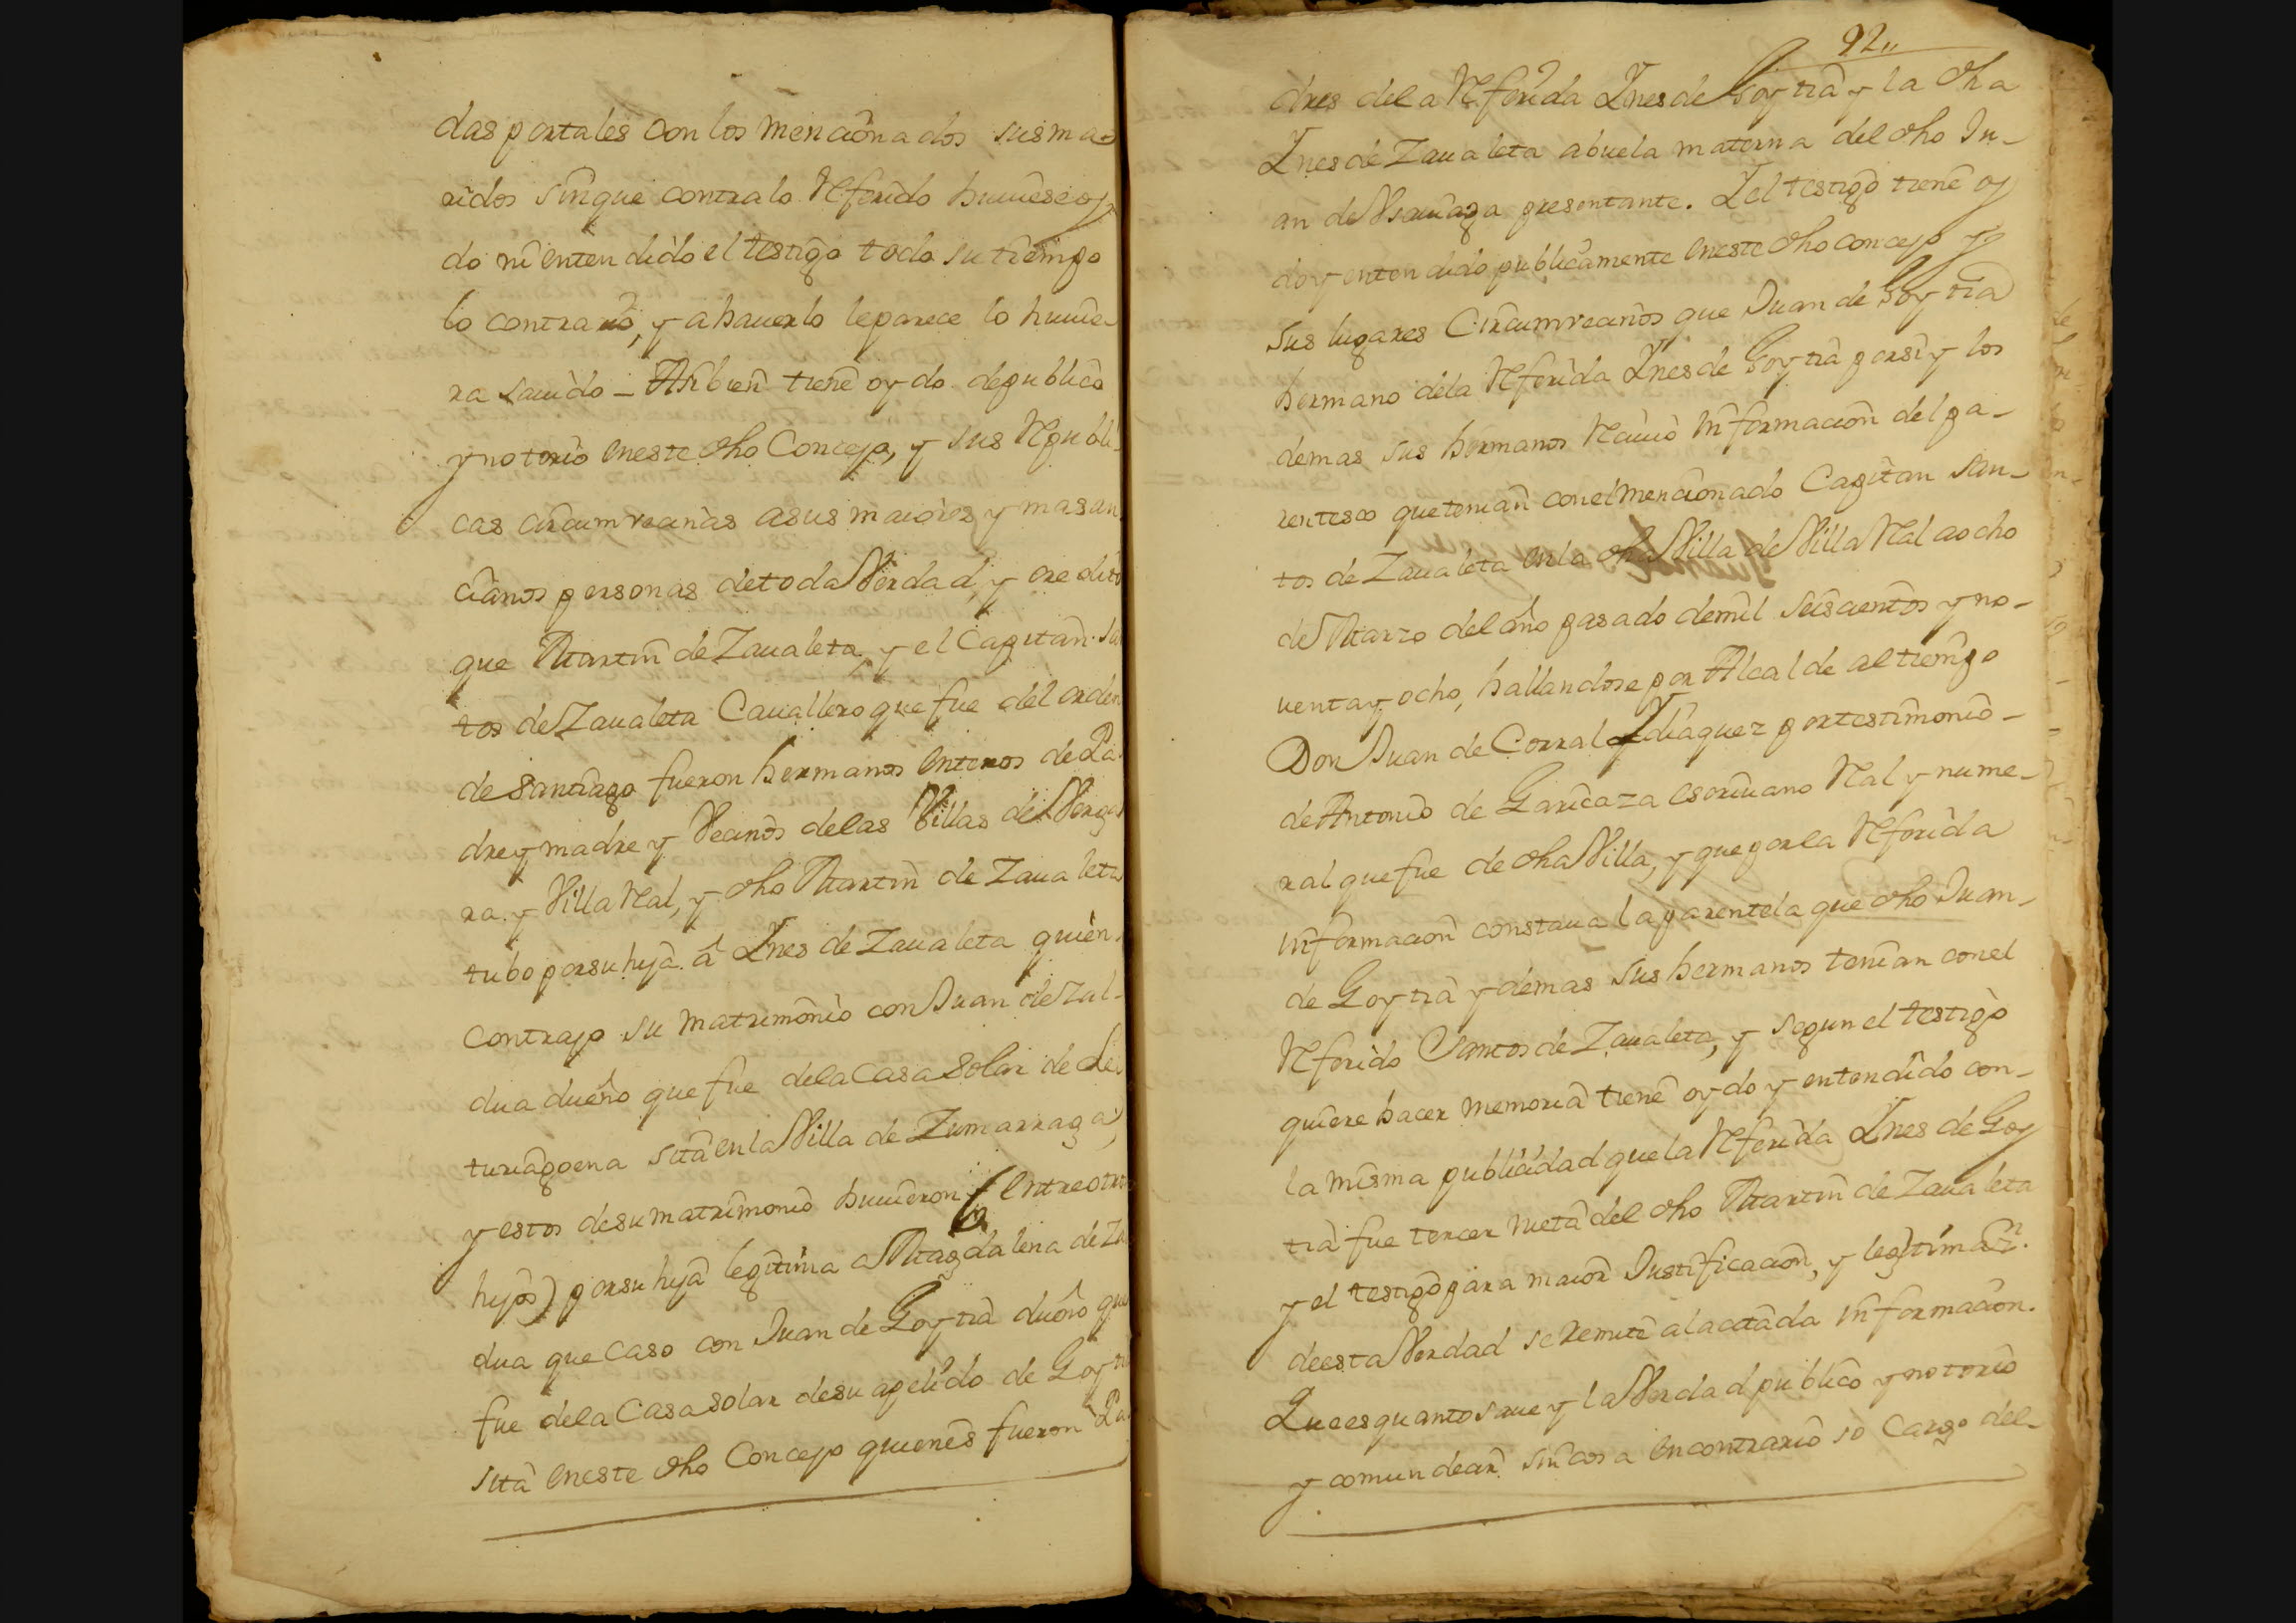 das portales con los mencionados sus ma-
ridos sin que contra lo Referido huuiese oy-
do ni entendido el testigo todo su tiempo
lo contrario, y a hauerlo le parece lo huuie-
ra sauido – Asi bien tiene oydo de publico
y notorio en este dho Concejo, y sus Republi-
cas circumvecinas a sus maiores y mas an
cianos personas de toda Verdad, y credito
que Martin de Zaualeta, y el Capitan San
tos de Zaualeta Cauallero que fue del orden
de Santiago fueron hermanos enteros de Pa
dre y madre y Vecinos de las Villas de Verga
ra y Villa Real, y dho Martin de Zaualeta
tubo por su hija â Ynes de Zaualeta quien
contrajo su matrimonio con Juan de Zal-
dua dueño que fue de la Casa Solar de Le
turiagoena sita en la Villa de Zumarraga,
y estos de su matrimonio huuieron (entre otros
hijos) por su hija legitima a Magdalena de Zal
dua que caso con Juan de Goytia dueño que
fue de la Casa solar de su apelido de Goytia
sita en este dho Concejo quienes fueron Pa
92,,
dres de la Referida Ynes de Goytia y la dha
Ynes de Zaualeta abuela materna del dho Ju-
an de presentante. Y el testigo tiene oy
do y entendido publicamente en este dho concejo y
sus lugares Circumvecinos que Juan de Goytia
hermano de la Referida Ynes de Goytia por si y los
demas sus hermanos Reciuio informacion del pa-
rentesco que tenian con el mencionado Capitan San-
tos de Zaualeta en la dha Villa de Villa Real a ocho
de Marzo del año pasado de mil seiscientos y no-
uenta y ocho, hallandose por Alcalde al tiempo
Don Juan de Corral Ydiaquez por testimonio-
de Antonio de Garicaza escriuano Real y nume-
ral que fue de dha Villa, y que por la Referida
informacion constaua la parentela que dho Juan-
de Goytia y demas sus hermanos tenian con el
Referido Santos de Zaualeta, y segun el testigo
quiere hacer memoria tiene oydo y entendido con-
la misma publicidad que la Referida Ynes de Goy
tia fue tercer nieta del dho Martin de Zaualeta
y el testigo para maior Justificacion, y legitimaon.
de esta Verdad se Remite a la citada informacion.
Que es quanto saue y la Verdad publico y notorio
y comun decir sin cosa en contrario so cargo del-